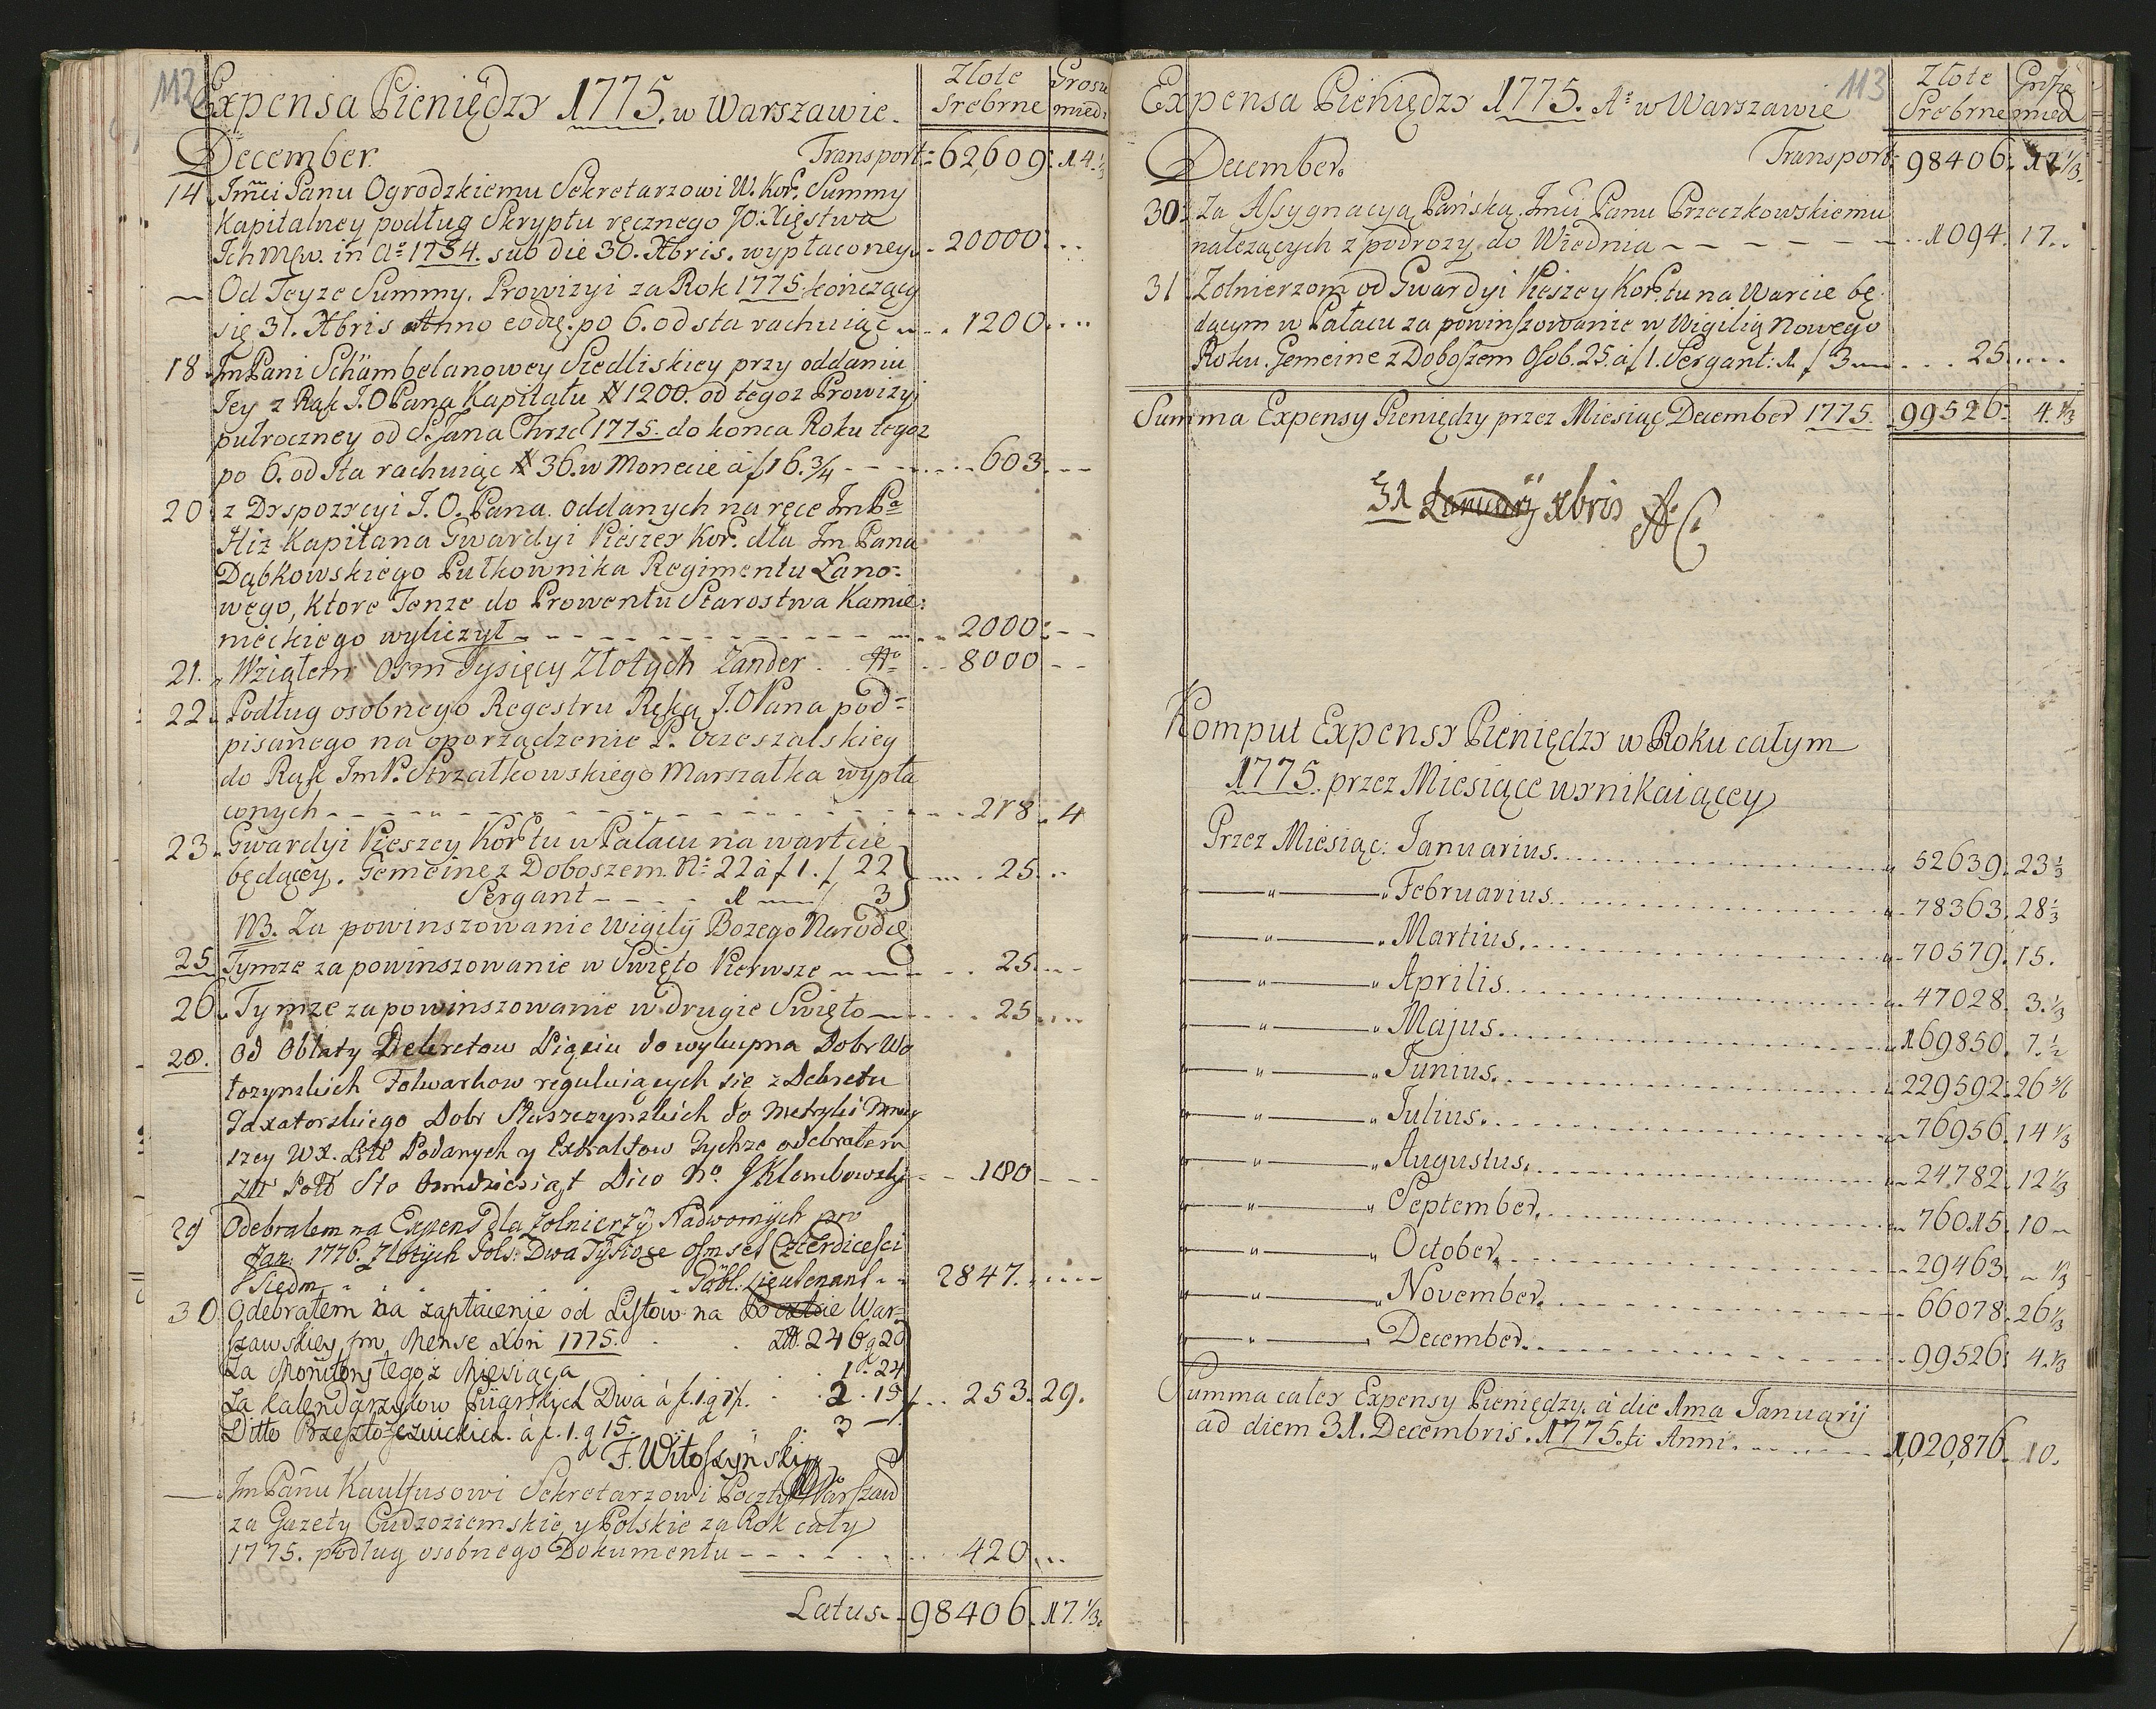 112
Expensa Pieniędzy 1775. w Warszawie.
Złote Srebrne
Grosze mied:
December.
Transport: 62,609: 14. 1/3
14. Jmci Panu Ogrodzkiemu Sekretarzowi W. Kor. Summy
Kapitalney podług Skryptu ręcznego JO: Xięstwa
Ich Mśw. in Ao 1754. sub die 30. Xbris. wypłaconey 20000.
— Od Teyze Summy. Prowizyi za Rok 1775 kończący
się 31. Xbris Anno eodē. po 6. od sta rachuiąc 1200.
18. Jm Pani Schambelanowey Siedliskiey przy oddaniu
Jey z Rąk J. O Pana Kapitału # 1200. od tegoz Prowizyi
pułroczney od S. Jana Chrzcī 1775. do konca Roku tegoz
po 6. od sta rachuiąc # 36. w Monecie a f 16. 3/4 603.
20. z Dyspozycyi J. O. Pana. Oddanych na ręce Jm Pa
Hiz Kapitana Gwardyi Pieszey Kor. dla Jm Pana
Dąbkowskiego Pułkownika Regimentu Łano:
wego, Ktore Tenze do Prowentu Starostwa Kamie:
nieckiego wyliczył 2000:
21. Wziąłem Osm Tysięcy Złotych Zander. 8000
22. Podług osobnego Regestru Ręką J. O Pana pod=
pisanego na oporządzenie P.
do Rąk Jm P. Strzałkowskiego Marszałka wypła
conych 218. 4
23. Gwardyi Pieszey Kor. tu w Pałacu na warcie
będącey. Gemeine z Doboszem No 22 à f 1. f 22 25.
Sergant 1 f 3
NB. Za powinszowanie Wigilij Bozego Narodē
25. Tymze za powinszowanie w Swięto Pierwsze 25.
26. Tymze za powinszowanie w drugie Swięto 25.
28. Od Oblaty Dekretow Pięciu do wykupna Dobr Wo
łozynskich Folwarkow reguluiących się z Dekretu
Taxatorskiego Dobr Słuszczynskich do Metryki
szey WX. Litt Podanych y Extraktow Tychze odebrałem
Złł Poll Sto Osmdziesiąt Dico No. J Klembowsky 180
29 Odebralem na Expens dla Zolnierzy Nadwornych pro
Jan: 1776. Złotych Pols: Dwa Tysiące Osmset Czterdiesci
Siedm Göbl. Lieutenant 2847.
30 Odebrałem na zapłacenie od Listow na War=
szawskiey, pro Mense Xbri 1775. Złł. 246 g 20
Za Monitory tegoż Miesiąca 1. 24
Za Kalendarzykow Piiarskich Dwa à f. 1. g 7½. 2. 15 253. 29.
Ditto Jezuickich. à f. 1. g 15. 3 —
F. Witoszynski
— Jm Panu Kaulfusowi Sekretarzowi Poczty Warszaw
za Gazety Cudzoziemskie y Polskie za Rok cały
1775. podług osobnego Dokumentu 420.
Latus. 98406. 17. 1/3.
113
Expensa Pieniędzy 1775. Ao w Warszawie
Złote Srebrne
Grosze mied
December.
Transport: 98406. 17 1/3.
30. Za Assygnacyą Pańską. Jmci Panu Przeczkowskiemu
należących z podrozy do Wiednia 1094. 17.
31 Zolnierzom od Gwardyi Pieszey Kor. tu na Warcie bę:
dącym w Pałacu za powinszowanie w Wigilią Nowego
Roku. Gemeine z Doboszem Osob. 25. à f 1. Sergant: 1 f 3 25.
Summa Expensy Pieniędzy przez Miesiąc December 1775. 99526. 4. 1/3
31 Januarij xbris
Komput Expensy Pieniędzy w Roku całym
1775. przez Miesiące wynikaiącey
Przez Miesiąc: Januarius. 52639. 23 1/3
" Februarius. 78363. 28 1/3
" Martius. 70579. 15.
" Aprilis. 47028. 3. 1/3
" Majus. 169850. 7. 1/2
" Junius. 229592. 26 5/6
" Julius. 76956. 14 1/3
" Augustus. 24782. 12 1/3
" September. 76015. 10 –
" October. 29463. – 1/3
" November. 66078. 26 1/3
" December. 99526. 4. 1/3
Summa całey Expensy Pieniędzy. à die 1ma Januarij
ad diem 31. Decembris. 1775. ti Anni. 1,020,876. 10.